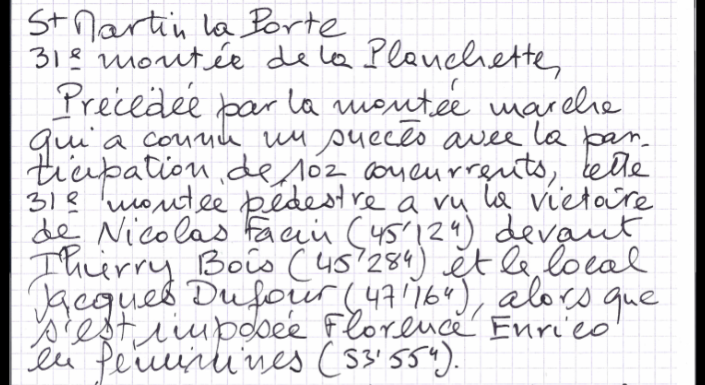 St Martin la Porte
31e montée de la Planchette,
Précédée par la montée marche
qui a connu un succès avec la par-
ticipation de 102 concurrents, cette
31e montée pédestre a vu la victoire
de Nicolas Facin (45'12") devant
Thierry Bois (45'28") et le local
Jacques Dufour (47'16"), alors que
s'est imposée Florence Enrico
en féminines (53'55").